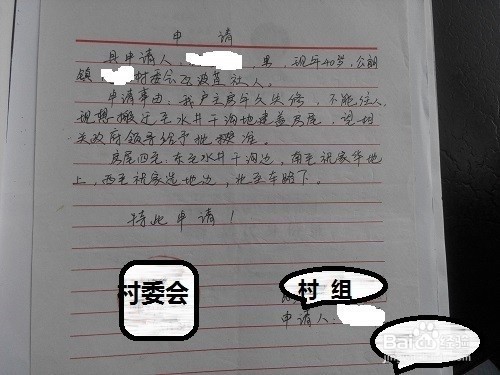 申请
具申请人: 男，现年40岁，公朗
镇 村委会 波茴社人。
申请事由：我户主房年久失修，不能住人，
现想搬迁至水井干沟地建盖房屋，望相
关政府领导给予批 准。
房屋四至：东至水井干沟边，南至 家 地
上，西至 家 地边，北至车路下。
特此申请！
村委会
村 组
申请人：
Bai 经验